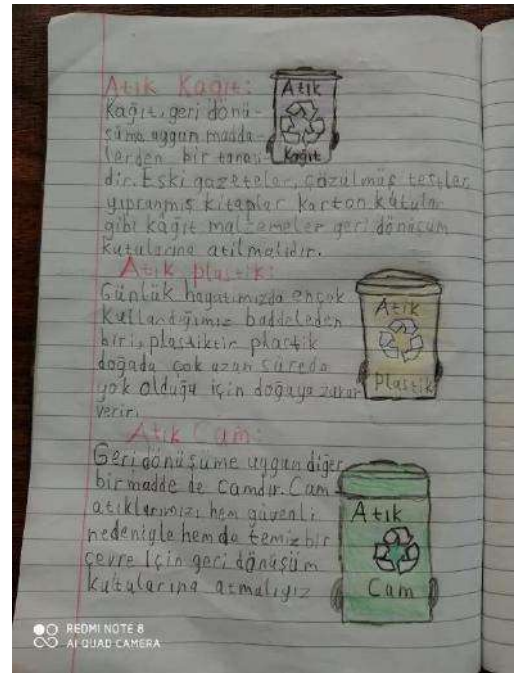 Atık Kağıt:
Kağıt, geri dönü-
şüme uygun madde-
lerden bir tanesi
dir. Eski gazeteler, çözülmüş testler
yıpranmış kitaplar karton kutular
gibi kağıt malzemeler geri dönüşüm
kutularına atılmalıdır.
Atık
Kağıt
Atık plastik:
Günlük hayatımızda ençok
kullandığımız baddeleden
biri, plastiktir plastik
doğada çok uzun sürede
yok olduğu için doğaya zarar
verir.
Atık
Plastik
Atık Cam:
Geri dönüşüme uygun diğer
bir madde de camdır. Cam
atıklarımızı hem güvenli
nedeniyle hem de temiz bir
çevre için geri dönüşüm
kutularına atmalıyız
Atık
Cam
REDMI NOTE 8
AI QUAD CAMERA